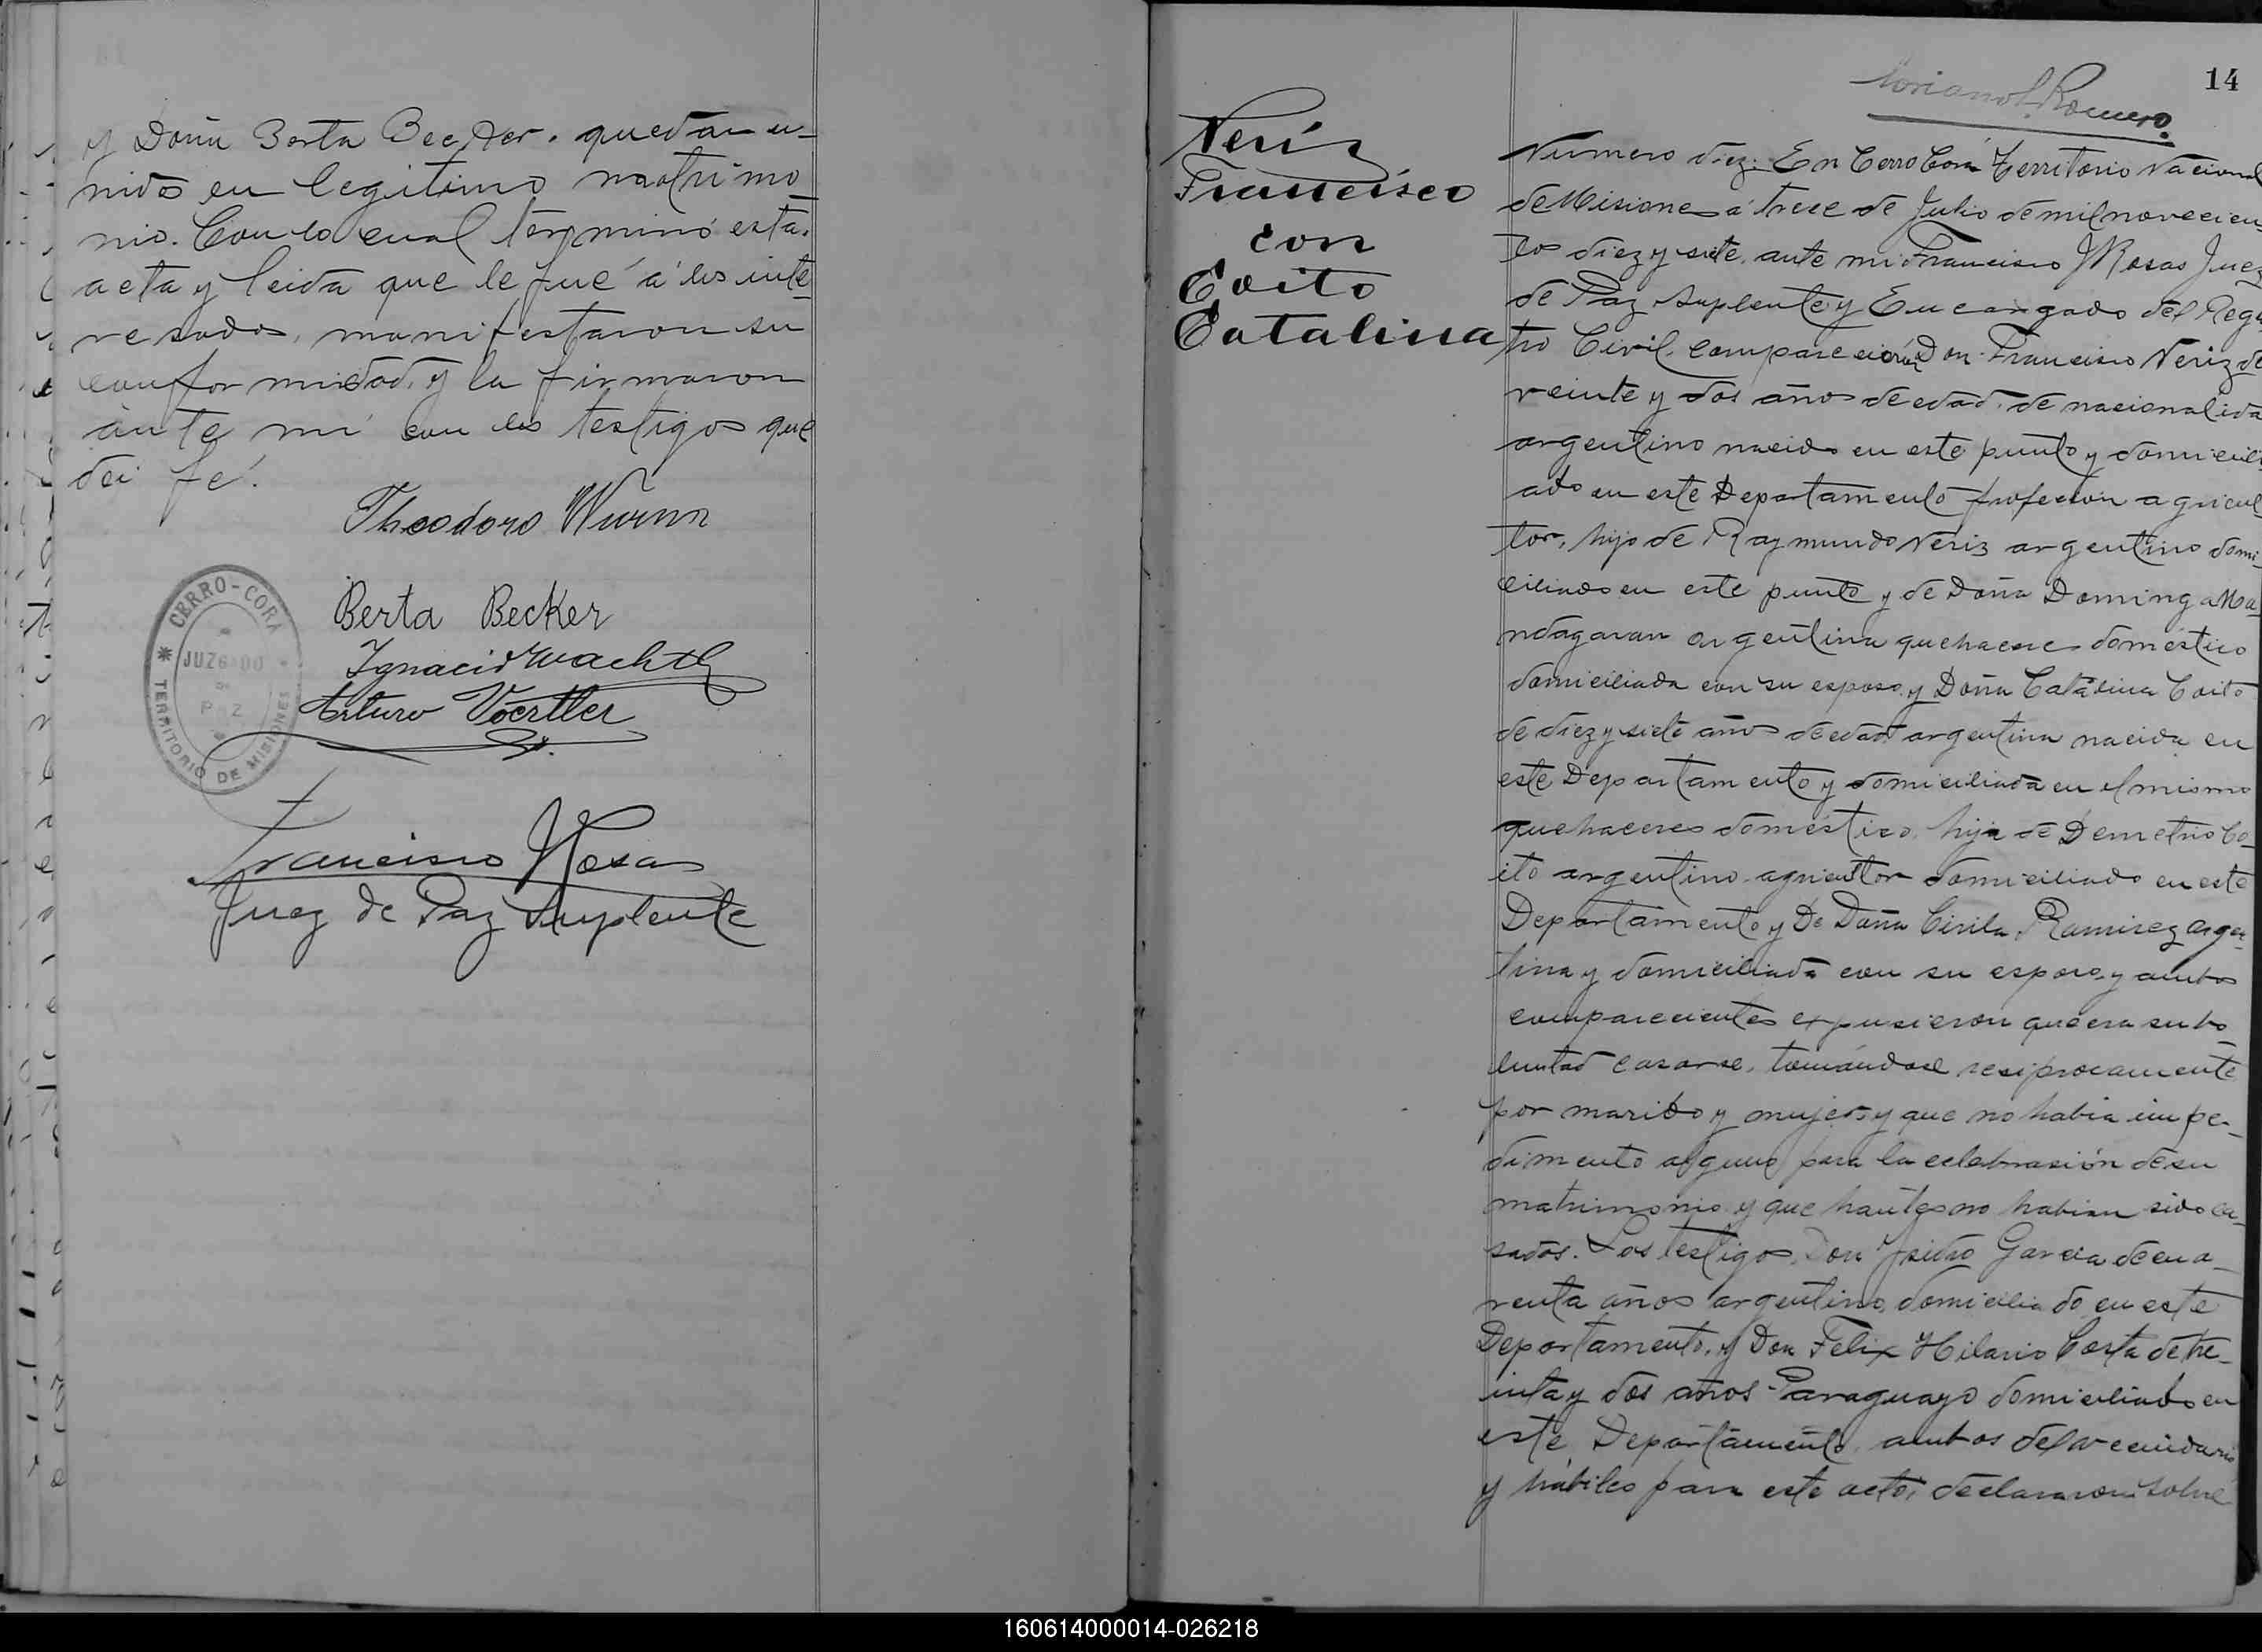 y Doña Berta Becker, quedan u-
nidos en legitimo matrimo-
nio. Con lo cual terminó esta
acta y leida que le fué á los inte-
resados, manifestaron su
conformidad, y la firmaron
ante mi con los testigos que
doi fé.
Theodoro Wurm
Berta Becker
Ignacio Wachtl
Arturo Voertler
CERRO-CORA
JUZGADO
DE
PAZ
TERRITORIO DE MISIONES
Francisco J Rosas
Juez de Paz Suplente
14
Romero
Neriz
Francisco
con
Coito
Catalina
Numero diez. En Cerro Corá Territorio Nacional
de Misiones á trece de Julio de mil novecien-
tos diez y siete, ante mi Francisco J Rosas Juez
de Paz Suplente y Encargado del Regis
tro Civil, comparecieron Don Francisco Neriz de
veinte y dos años de edad, de nacionalida
argentino nacido en este punto y domicili
ado en este Departamento profecion agricul-
tor, hijo de Raymundo Neris argentino domi-
ciliado en este punto y de Doña Dominga Ma
ndagaran argentina quehacere doméstico
domiciliada con su esposo, y Doña Catalina Coito
de diez y siete años de edad argentina nacida en
este Departamento y domiciliada en el mismo
quehaceres doméstico, hija de Demetrio Co-
ito argentino agricultor domiciliado en este
Departamento y de Doña Cirila Ramirez argen-
tina y domiciliada con su esposo, y ambos
comparecientes expusieron que era su vo-
luntad casarse, tomándose resiprocamente
por marido y mujer, y que no habia impe-
dimento alguno para la celebrasión de su
matrimonio y que hantes no habian sido ca-
sados. Los testigos, Don Isidro Garcia de cua-
renta años argentino, domiciliado en este
Departamento, y Don Felix Hilario Costa de tre-
inta y dos años Paraguayo domiciliado en
este Departamento, ambos del vecindario
y hábiles para este acto, declararon sobre